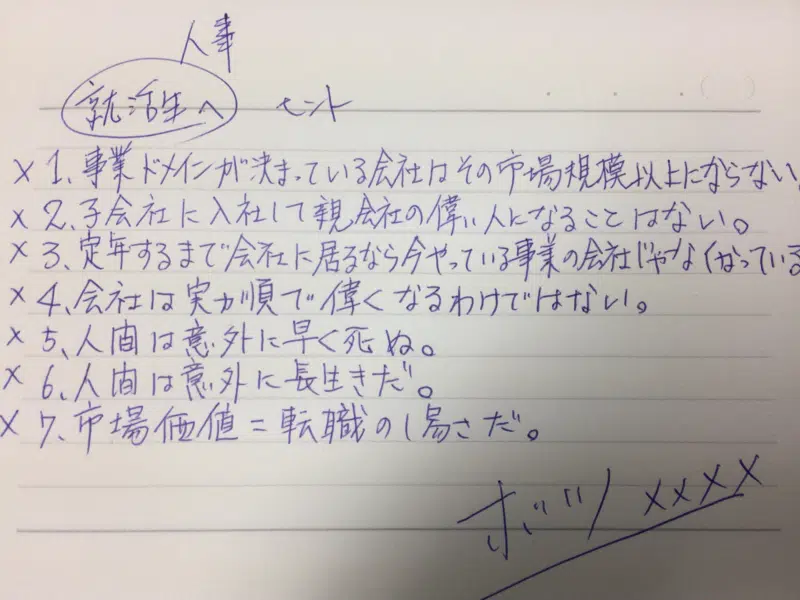 人事
就活生へ ヒント
× 1、事業ドメインが決まっている会社はその市場規模以上にならない。
× 2、子会社に入社して親会社の偉い人になることはない。
× 3、定年するまで会社に居るなら今やっている事業の会社じゃなくなっている
× 4、会社は実力順で偉くなるわけではない。
× 5、人間は意外に早く死ぬ。
× 6、人間は意外に長生きだ。
× 7、市場価値=転職のし易さだ。
ボツ ××××